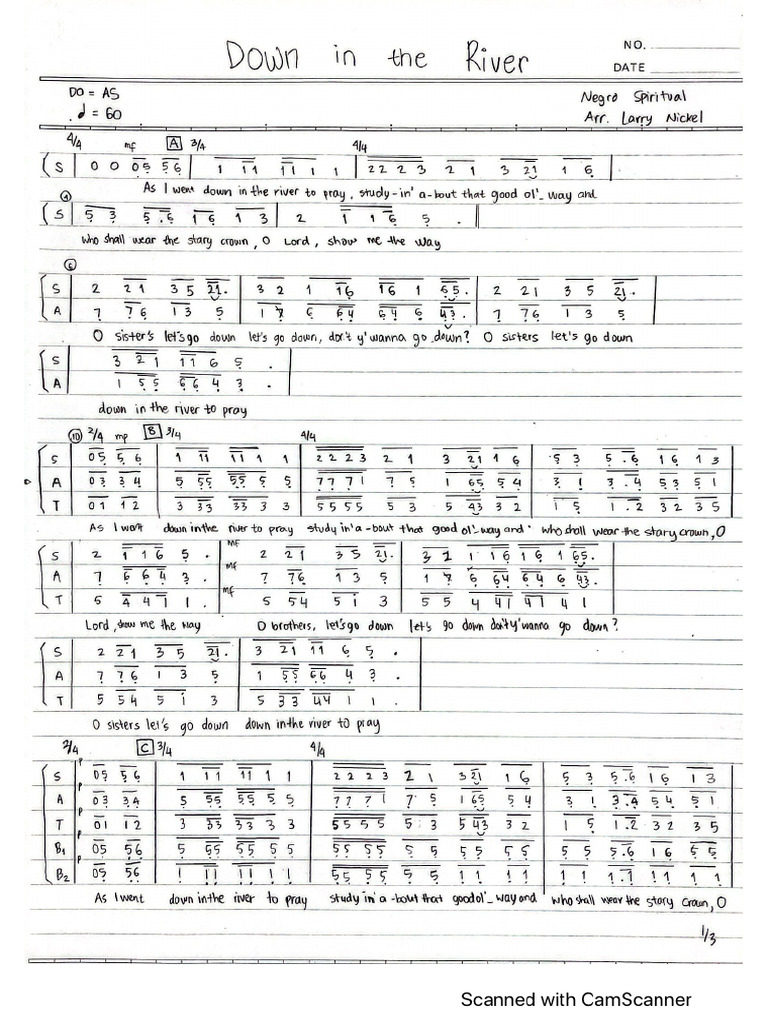 Down in the River
NO.
DATE
DO = AS
♩ = 60
Negro Spiritual
Arr. Larry Nickel
4/4 mf A 3/4 4/4
S 0 0 05 56 | 1 11 11 1 1 | 2 2 2 3 2 1 3 21 1 6
As I went down in the river to pray, study-in' a-bout that good ol'_ way and
4
S 5 3 5.6 16 13 | 2 1 1 6 5 .
who shall wear the stary crown, O Lord, show me the way
6
S 2 21 35 21. | 3 2 1 16 16 1 65. | 2 21 3 5 21.
A 7 76 13 5 | 17 6 64 64 6 43. | 7 76 1 3 5
O sister's let's go down let's go down, don't y' wanna go down? O sisters let's go down
S 3 21 11 6 5 .
A 1 55 66 4 3 .
down in the river to pray
10 2/4 mp B 3/4 4/4
S 05 56 | 1 11 11 1 1 | 2 2 2 3 2 1 3 21 1 6 | 5 3 5 .6 16 13
A 03 34 | 5 55 55 5 5 | 7 7 7 1 7 5 1 65 54 | 3 1 3 .4 53 51
T 01 12 | 3 33 33 3 3 | 5 5 5 5 5 3 5 43 3 2 | 1 5 1 .2 32 35
As I went down in the river to pray study in' a-bout that good ol'-way and who shall wear the stary crown, O
S 2 1 1 6 5 . | mf 2 21 35 21. | 3 2 1 16 16 1 65.
A 7 6 6 4 3 . | mf 7 76 1 3 5 | 1 7 6 64 64 6 43.
T 5 4 4 1 1 . | mf 5 54 5 1 3 | 5 5 4 41 41 4 1
Lord, show me the way O brothers, let's go down let's go down don't y' wanna go down?
S 2 21 35 21. | 3 21 11 6 5 .
A 7 76 1 3 5 | 1 55 66 4 3 .
T 5 54 5 1 3 | 5 33 44 1 1 .
O sisters let's go down down in the river to pray
2/4 C 3/4 4/4
S p 05 56 | 1 11 11 1 1 | 2 2 2 3 2 1 3 21 16 | 5 3 5.6 16 13
A p 03 34 | 5 55 55 5 5 | 7 7 7 1 7 5 1 65 5 4 | 3 1 3.4 54 51
T p 01 12 | 3 33 33 3 3 | 5 5 5 5 5 3 5 43 32 | 1 5 1.2 32 35
B1 p 05 56 | 5 55 55 55 | 55 55 5 5 55 55 | 5 5 5.6 16 55
B2 p 05 56 | 1 11 11 1 1 | 55 55 5 5 11 11 | 1 1 1.1 11 11
As I went down in the river to pray study in' a-bout that good ol'_ way and who shall wear the stary crown, O
1/3
Scanned with CamScanner